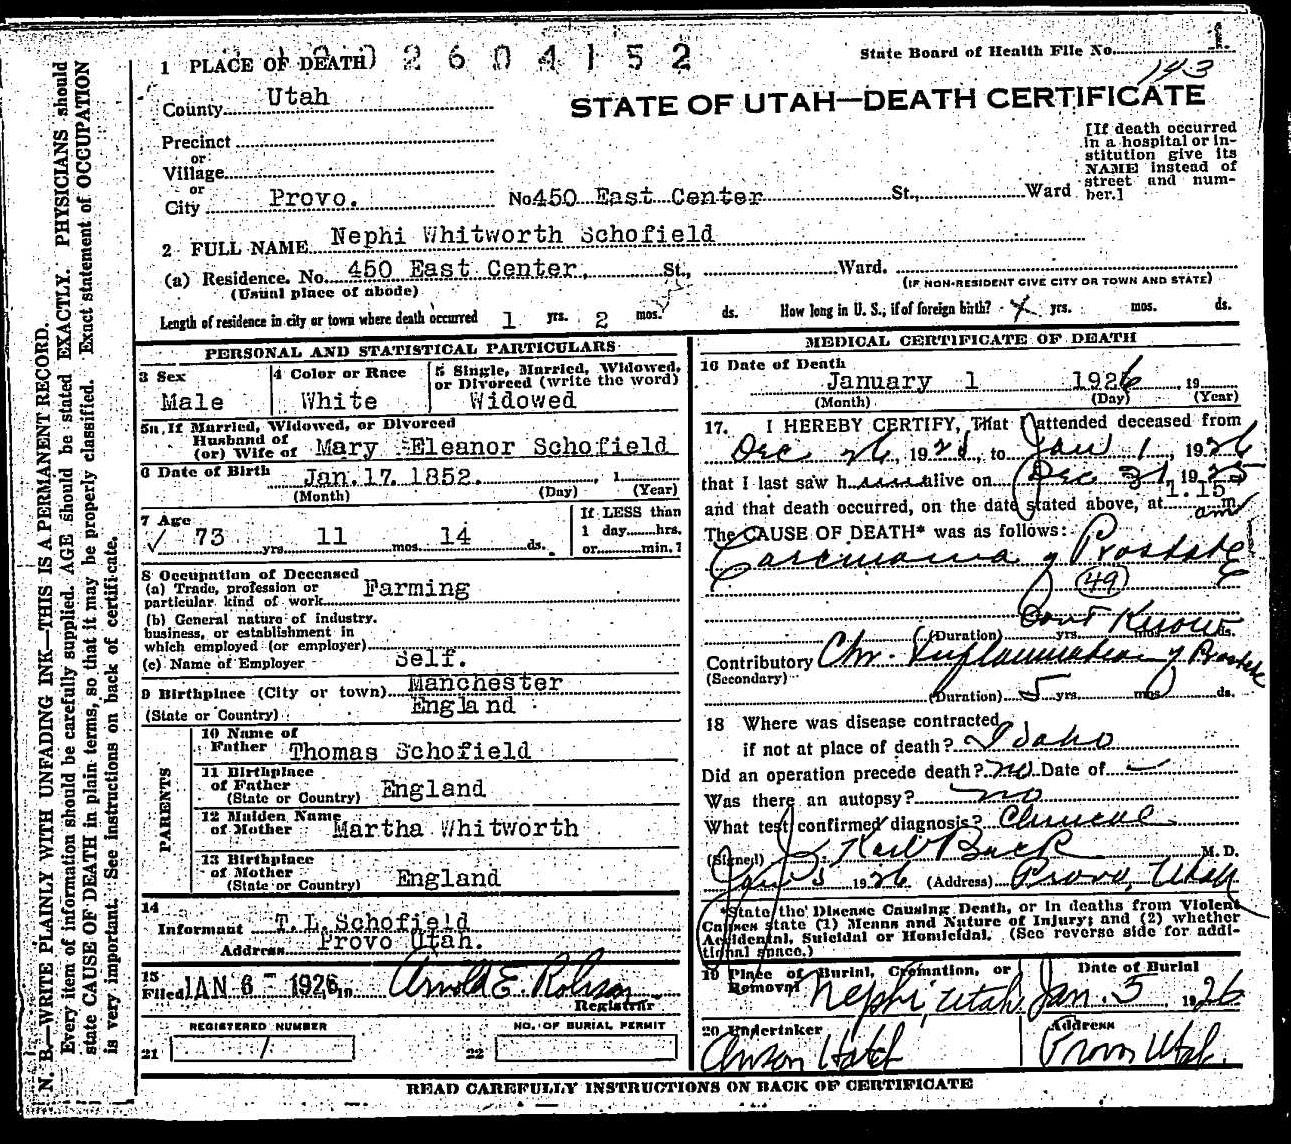 1 PLACE OF DEATH
2604152
State Board of Health File No. 1
143
County Utah
STATE OF UTAH—DEATH CERTIFICATE
Precinct
or
Village
or
City Provo. No. 450 East Center St., Ward
[If death occurred
in a hospital or in-
stitution give its
NAME instead of
street and num-
ber.]
2 FULL NAME Nephi Whitworth Schofield
(a) Residence. No. 450 East Center, St., Ward.
(Usual place of abode)
(IF NON-RESIDENT GIVE CITY OR TOWN AND STATE)
Length of residence in city or town where death occurred 1 yrs. 2 mos. ds. How long in U. S., if of foreign birth? yrs. mos. ds.
PERSONAL AND STATISTICAL PARTICULARS
3 Sex
Male
4 Color or Race
White
5 Single, Married, Widowed,
or Divorced (write the word)
Widowed
5a. If Married, Widowed, or Divorced
Husband of
(or) Wife of Mary Eleanor Schofield
6 Date of Birth Jan. 17. 1852. , 1
(Month) (Day) (Year)
7 Age
73 yrs. 11 mos. 14 ds.
If LESS than
1 day hrs.
or min.?
8 Occupation of Deceased
(a) Trade, profession or
particular kind of work Farming
(b) General nature of industry,
business, or establishment in
which employed (or employer)
(c) Name of Employer Self.
9 Birthplace (City or town) Manchester
(State or Country) England
PARENTS
10 Name of
Father Thomas Schofield
11 Birthplace
of Father England
(State or Country)
12 Maiden Name
of Mother Martha Whitworth
13 Birthplace
of Mother England
(State or Country)
14
Informant T.L. Schofield
Address Provo Utah.
15
Filed JAN 6 - 1926, 19 Arnold E. Robison
Registrar
REGISTERED NUMBER
21 1
NO. OF BURIAL PERMIT
22
MEDICAL CERTIFICATE OF DEATH
16 Date of Death
January 1 1926, 19
(Month) (Day) (Year)
17. I HEREBY CERTIFY, That I attended deceased from
Dec 26, 192 , to Jan 1, 1926
that I last saw h alive on Dec 31, 1925
and that death occurred, on the date stated above, at 1.15 am m.
The CAUSE OF DEATH* was as follows:
Carcinoma of Prostate
(49)
Dont Know
(Duration) yrs. mos. ds.
Contributory Chr. Inflammation of Prostate
(Secondary)
(Duration) 5 yrs. mos. ds.
18 Where was disease contracted
if not at place of death? Idaho
Did an operation precede death? no Date of —
Was there an autopsy? no
What test confirmed diagnosis? Clinical
(Signed) J. Karl Beck M. D.
Jan 5 1926 (Address) Provo, Utah
*State the Disease Causing Death, or in deaths from Violent
Causes state (1) Means and Nature of Injury; and (2) whether
Accidental, Suicidal or Homicidal. (See reverse side for addi-
tional space.)
19 Place of Burial, Cremation, or
Removal Nephi, Utah.
Date of Burial
Jan. 3, 1926
20 Undertaker
Anson Hatch
Address
Provo Utah.
READ CAREFULLY INSTRUCTIONS ON BACK OF CERTIFICATE
N. B.—WRITE PLAINLY WITH UNFADING INK—THIS IS A PERMANENT RECORD.
Every item of information should be carefully supplied. AGE should be stated EXACTLY. PHYSICIANS should
state CAUSE OF DEATH in plain terms, so that it may be properly classified. Exact statement of OCCUPATION
is very important. See instructions on back of certificate.